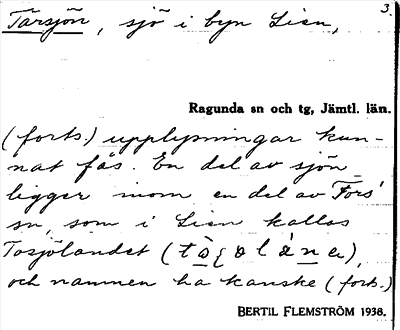 3.
Tarsjön, sjö i byn Lien,
Ragunda sn och tg, Jämtl. län.
(forts.) upplysningar kun-
nat fås. En del av sjön
ligger inom en del av Fors'
sn, som i Lien kallas
Tosjölandet
och namnen ha kanske (forts.)
BERTIL FLEMSTRÖM 1938.